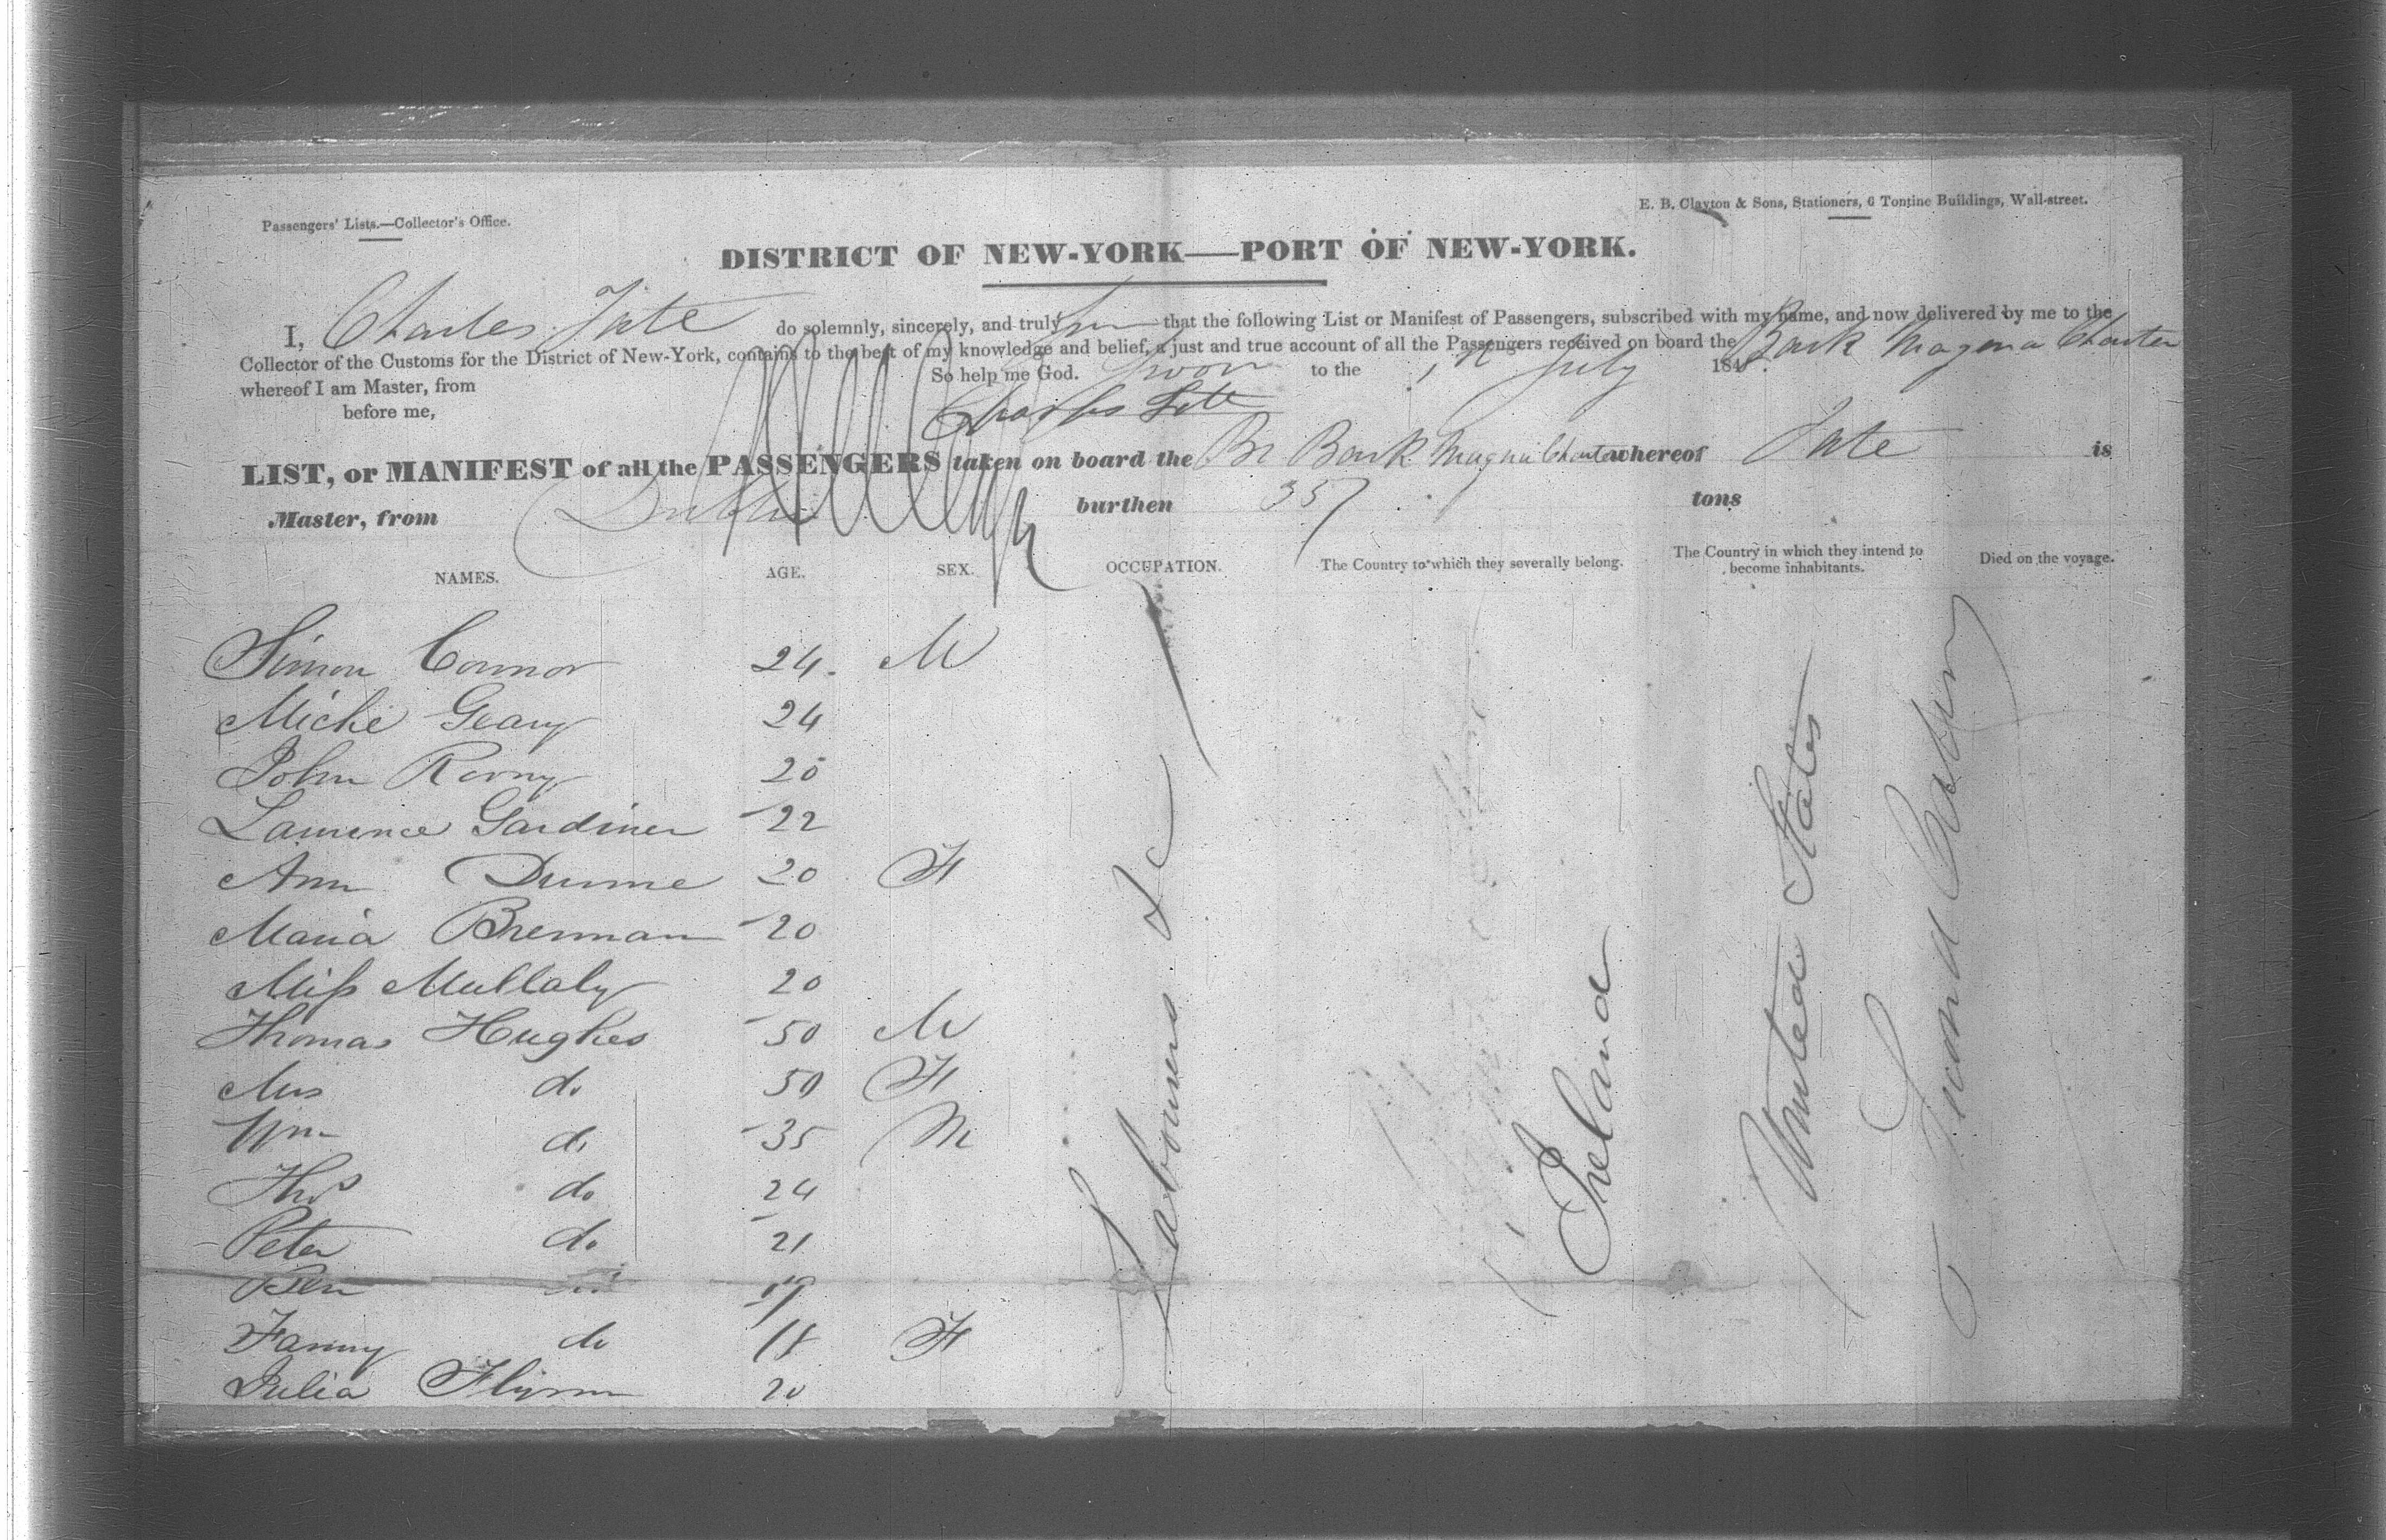 Passengers' Lists.—Collector's Office.
E. B. Clayton & Sons, Stationers, 6 Tontine Buildings, Wall-street.
DISTRICT OF NEW-YORK—PORT OF NEW-YORK.
I, Charles Tate do solemnly, sincerely, and truly that the following List or Manifest of Passengers, subscribed with my name, and now delivered by me to the
Collector of the Customs for the District of New-York, contains to the best of my knowledge and belief, a just and true account of all the Passengers received on board the Bark Magna Charta
whereof I am Master, from So help me God. Sworn to the 1st July 184
before me, Charles Tate
LIST, or MANIFEST of all the PASSENGERS taken on board the Br Bark Magna Charta whereof Tate is
Master, from Dublin burthen 357 tons
NAMES. AGE. SEX. OCCUPATION. The Country to which they severally belong. The Country in which they intend to become inhabitants. Died on the voyage.
Simon Connor 24. M
Miche Geary 24
John 20
Laurence Gardiner 22
Ann Dunne 20 F
Maria Brennan 20
Miss Mullaly 20
Thomas Hughes 50 M
Mrs do 50 F
Wm do 35 M
Thos do 24
Peter do 21
Ben do 19
Fanny do 18 F
Julia Flynn 20
Labourers &c
Ireland
United States
Second Cabin